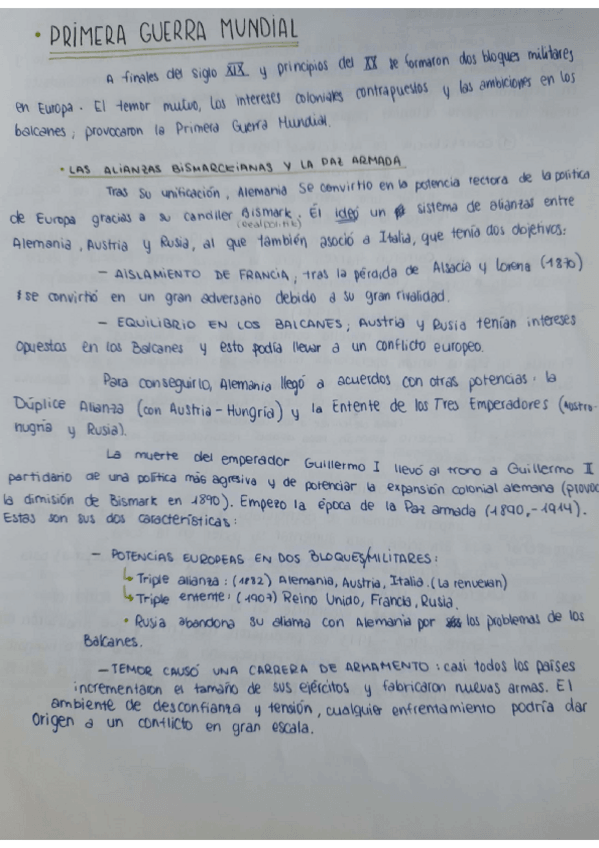 • PRIMERA GUERRA MUNDIAL
A finales del siglo XIX y principios del XX se formaron dos bloques militares
en Europa. El temor mutuo, los intereses coloniales contrapuestos y las ambiciones en los
balcanes, provocaron la Primera Guerra Mundial.
• LAS ALIANZAS BISMARCKIANAS Y LA PAZ ARMADA
Tras su unificación, Alemania se convirtio en la potencia rectora de la política
de Europa gracias a su canciller Bismark. Él ideó un sistema de alianzas entre
(realpolitik)
Alemania, Austria y Rusia, al que también asoció a Italia, que tenía dos objetivos:
— AISLAMIENTO DE FRANCIA, tras la pérdida de Alsacia y Lorena (1870)
se convirtió en un gran adversario debido a su gran rivalidad.
— EQUILIBRIO EN LOS BALCANES, Austria y Rusia tenían intereses
opuestos en los Balcanes y esto podía llevar a un conflicto europeo.
Para conseguirlo, Alemania llegó a acuerdos con otras potencias: la
Dúplice Alianza (con Austria-Hungría) y la Entente de los Tres Emperadores (Austro-
hugría y Rusia).
La muerte del emperador Guillermo I llevó al trono a Guillermo II
partidario de una política más agresiva y de potenciar la expansión colonial alemana (provoc
la dimisión de Bismark en 1890). Empezo la época de la Paz armada (1890,-1914).
Estas son sus dos características:
— POTENCIAS EUROPEAS EN DOS BLOQUES/MILITARES:
↳ Triple alianza: (1882) Alemania, Austria, Italia. (La renuevan)
↳ Triple entente: (1907) Reino Unido, Francia, Rusia.
• Rusia abandona su alianza con Alemania por los problemas de los
Balcanes.
— TEMOR CAUSÓ UNA CARRERA DE ARMAMENTO: casi todos los países
incrementaron el tamaño de sus ejércitos y fabricaron nuevas armas. El
ambiente de desconfianza y tensión, cualquier enfrentamiento podría dar
origen a un conflicto en gran escala.